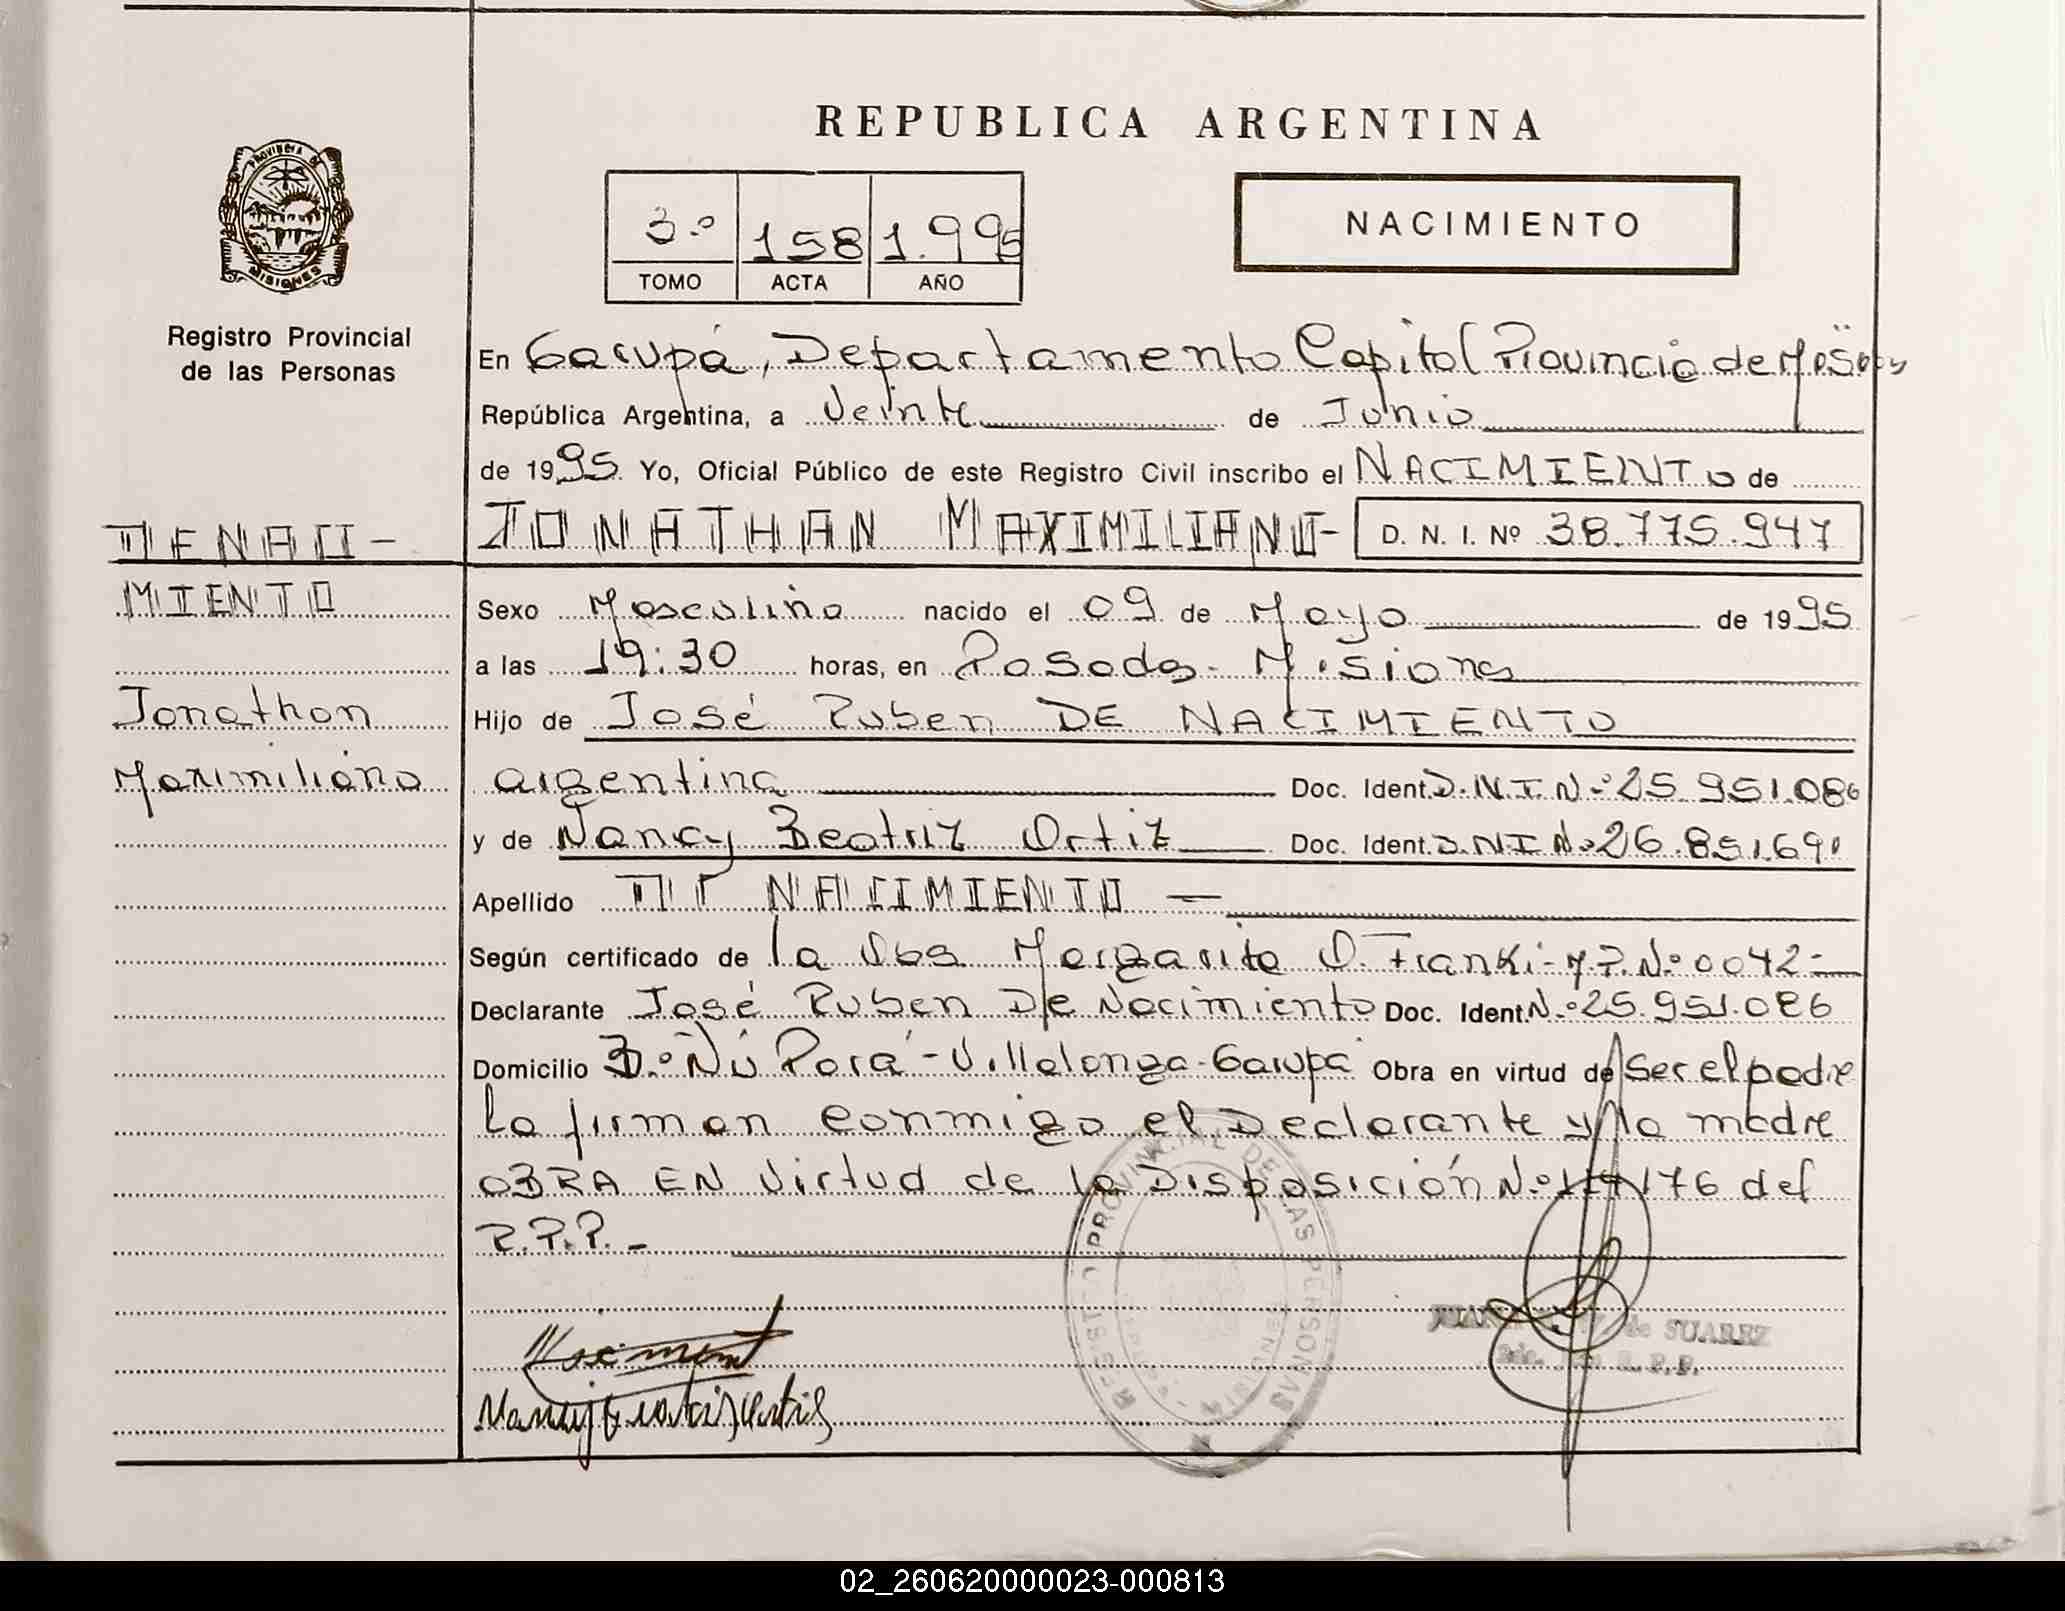 REPUBLICA ARGENTINA
PROVINCIA DE
MISIONES
Registro Provincial
de las Personas
3.º 158 1.995
TOMO ACTA AÑO
NACIMIENTO
En Garupá, Departamento Capital Provincia de Misiones
República Argentina, a Veinte de Junio
de 1995. Yo, Oficial Público de este Registro Civil inscribo el NACIMIENTO de
JONATHAN MAXIMILIANO- D. N. I. Nº 38.775.947
DE NACI-
MIENTO
Jonathan
Maximiliano
Sexo Masculino nacido el 09 de Mayo de 1995
a las 19:30 horas, en Posadas- Misiones
Hijo de José Ruben DE NACIMIENTO
argentina Doc. Ident. D.N.I N.º 25.951.086
y de Nancy Beatriz Ortiz Doc. Ident. D.N.I N.º 26.851.691
Apellido DE NACIMIENTO —
Según certificado de la Obs. Margarita O. Franki- M.P. N.º 0042-
Declarante José Ruben De Nacimiento Doc. Ident. N.º 25.951.086
Domicilio B.º Ñú Porá - Villalonga - Garupá Obra en virtud de Ser el padre
La firman conmigo el Declarante y la madre
OBRA EN Virtud de la Disposición N.º 176 del
R.P.P. -
REGISTRO PROVINCIAL DE LAS PERSONAS
MISIONES
de SUAREZ
R.P.P.
Nancy Beatriz Ortiz
02_260620000023-000813